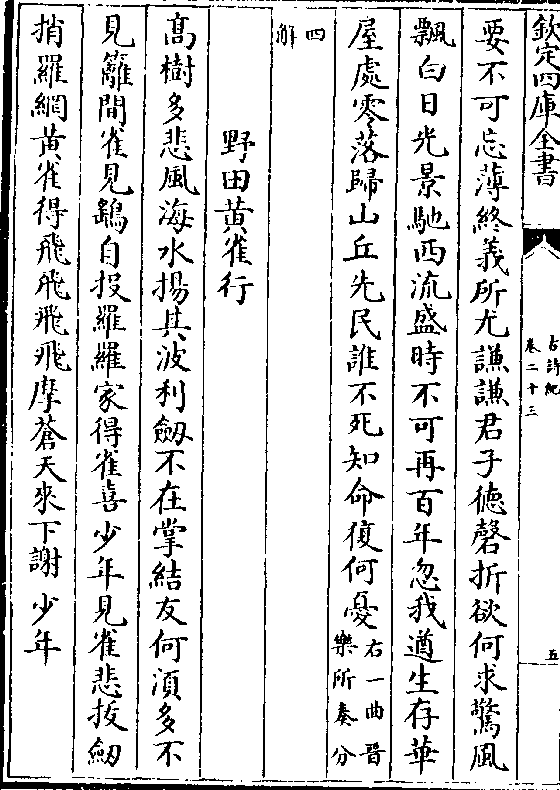 欽定四庫全書
古詩紀
卷二十三
五
要不可忘薄終義所尤謙謙君子徳磬折欲何求驚風
飄白日光景馳西流盛時不可再百年忽我遒生存華
屋處零落歸山丘先民誰不死知命復何憂右一曲晉
樂所奏分
四
解
野田黄雀行
髙樹多悲風海水揚其波利劒不在掌結友何須多不
見籬間雀見鷂自投羅羅家得雀喜少年見雀悲拔劒
捎羅網黄雀得飛飛飛飛摩蒼天來下謝少年